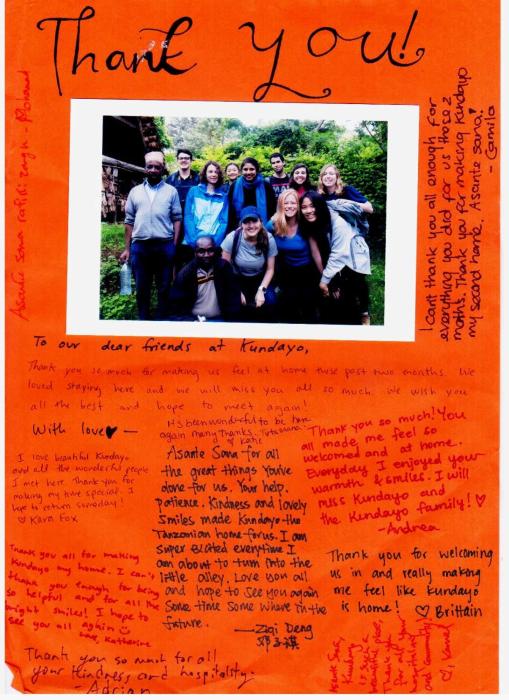 Thank You!
Asante Sana rafiki zangu - Mohamad
I can't thank you all enough for
everything you did for us those 2
months. Thank you for making Kundayo
my second home. Asante sana!
- Camila
To our dear friends at Kundayo,
Thank you so much for making us feel at home these past two months. We
loved staying here and we will miss you all so much. We wish you
all the best and hope to meet again!
With love
It's been wonderful to be here
again many thanks.
Katie
I love beautiful Kundayo
and all the wonderful people
I met here. Thank you for
making my time special. I
hope to return someday!
♡ Kara Fox
Asante Sana for all
the great things you've
done for us. Your help,
patience, kindness and lovely
smiles made Kundayo the
Tanzanian home for us. I am
super elated everytime I
am about to turn into the
little alley. Love you all
and hope to see you again
some time some where in the
future.
—Ziqi Deng
邓子祺
Thank you so much! You
all made me feel so
welcomed and at home.
Everyday I enjoyed your
warmth & smiles. I will
miss Kundayo and
the Kundayo family! ♡
-Andrea
Thank you all for making
Kundayo my home. I can't
thank you enough for being
so helpful and all the
bright smiles! I hope to
see you all again
Love, Katherine
Thank you for welcoming
us in and really making
me feel like Kundayo
is home! ♡ Brittain
Thank you so much for all
your kindness and hospitality.
- Adrian
Asante Sana,
Kundayo
is a
beautiful place,
Thank you
for all your
and community